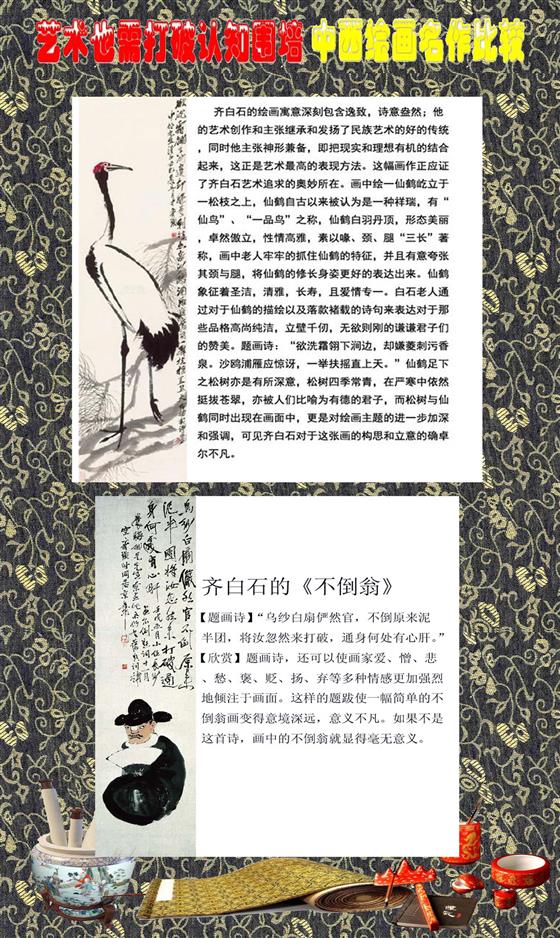 艺术也需打破认知围墙 中西绘画名作比较
齐白石的绘画寓意深刻包含逸致，诗意盎然；他
的艺术创作和主张继承和发扬了民族艺术的好的传统
，同时他主张神形兼备，即把现实和理想有机的结合
起来，这正是艺术最高的表现方法。这幅画作正应证
了齐白石艺术追求的奥妙所在。画中绘一仙鹤屹立于
一松枝之上，仙鹤自古以来被认为是一种祥瑞，有“
仙鸟”、“一品鸟”之称，仙鹤白羽丹顶，形态美丽
，卓然傲立，性情高雅，素以喙、颈、腿“三长”著
称，画中老人牢牢的抓住仙鹤的特征，并且有意夸张
其颈与腿，将仙鹤的修长身姿更好的表达出来。仙鹤
象征着圣洁，清雅，长寿，且爱情专一。白石老人通
过对于仙鹤的描绘以及落款褚载的诗句来表达对于那
些品格高尚纯洁，立壁千仞，无欲则刚的谦谦君子们
的赞美。题画诗：“欲洗霜翎下涧边，却嫌菱刺污香
泉。沙鸥浦雁应惊讶，一举扶摇直上天。”仙鹤足下
之松树亦是有所深意，松树四季常青，在严寒中依然
挺拔苍翠，亦被人们比喻为有德的君子，而松树与仙
鹤同时出现在画面中，更是对绘画主题的进一步加深
和强调，可见齐白石对于这张画的构思和立意的确卓
尔不凡。
齐白石的《不倒翁》
【题画诗】“乌纱白扇俨然官，不倒原来泥
半团，将汝忽然来打破，通身何处有心肝。”
【欣赏】题画诗，还可以使画家爱、憎、悲
、愁、褒、贬、扬、弃等多种情感更加强烈
地倾注于画面。这样的题跋使一幅简单的不
倒翁画变得意境深远，意义不凡。如果不是
这首诗，画中的不倒翁就显得毫无意义。